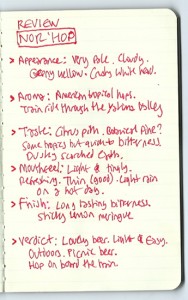 REVIEW
NOR'HOP
> Appearance: Very Pale. Cloudy.
Glowy yellow. Crusty white head.
> Aroma: American tropical hops.
Train ride through the Yakima Valley
> Taste: Citrus pith. Botanical Pine?
Some tropics but quick to bitterness
Dusty scorched earth.
> Mouthfeel: Light & tingly.
Refreshing. Thin (good). Light rain
on a hot day.
> Finish: Long lasting bitterness
sticky lemon meringue
> Verdict: Lovely beer. Light & Easy.
Outdoors. Picnic beer.
Hop on board the train.